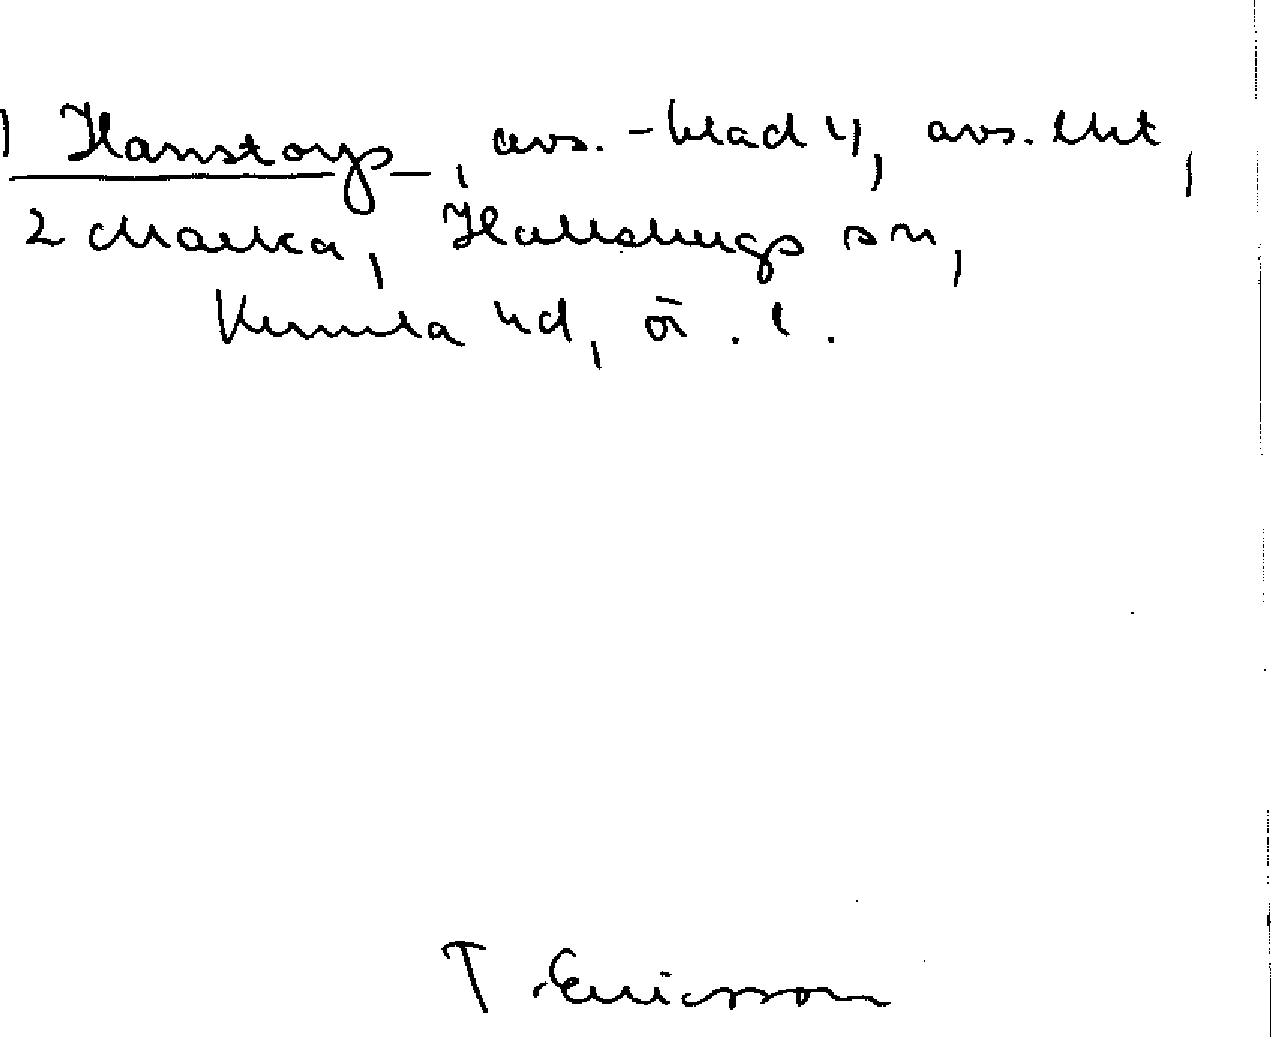 1 Hanstorp, avs. -blad 4, avs. lht,
2
Hallsbergs sn,
Kumla hd, Ör. l.
T. Ericsson